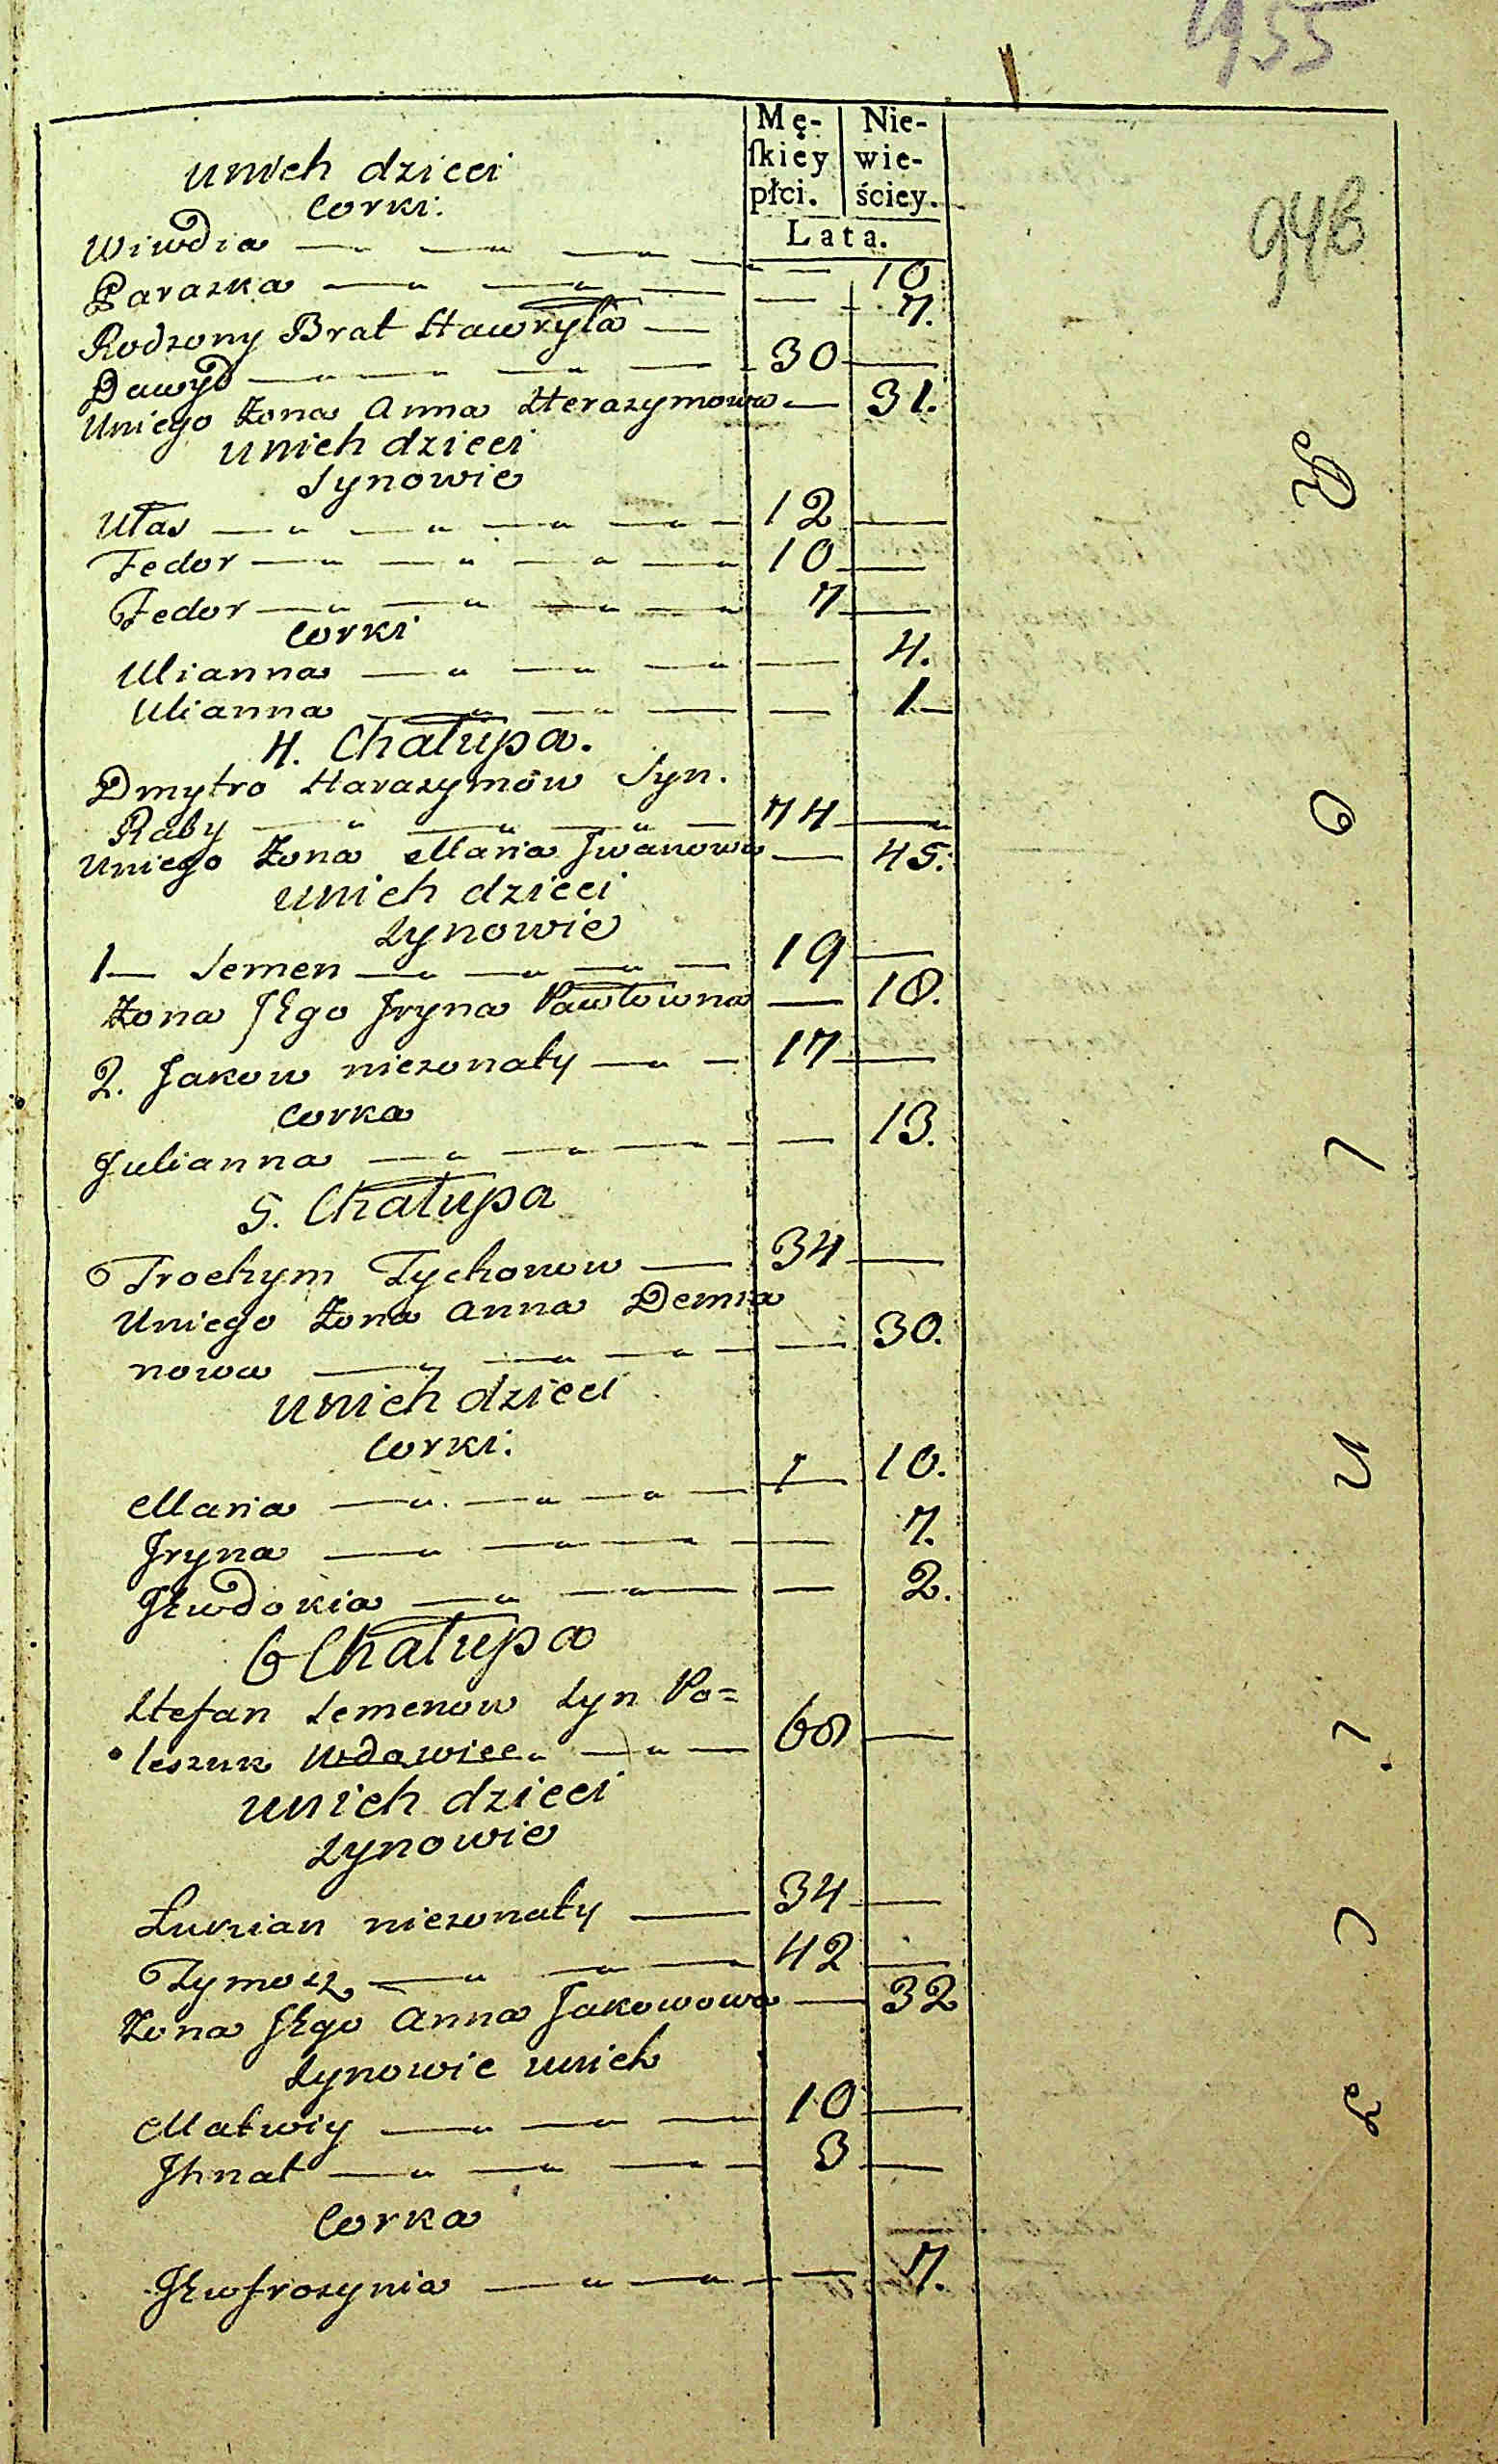 1955
Mę-
ſkiey
płci.
Nie-
wie-
ściey.
Lata.
94b
unich dzieci
Corki:
Wiwdia — — — — 10
Paraska — — — — 7.
Rodzony Brat Hawryła —
Dawyd — — — — 30 —
Uniego Żona Anna Herasymowa — 31.
unich dzieci
Synowie
Ułas — — — — 12 —
Fedor — — — — 10 —
Fedor — — — — 7 —
Corki
Ulianna — — — — 4.
Ulianna — — — — 1
4. Chałupa.
Dmytro Harasymów Syn.
Raby — — — — 74 —
Uniego Żona Maria Jwanowa — 45.
unich dzieci
Synowie
1 — Semen — — — — 19 —
Żona JEgo Jryna Pawłowna — 18.
2. Jakow nieżonaty — — 17 —
Corka
Julianna — — — — 13.
5. Chałupa
Trochym Tychonow — 34 —
Uniego Żona Anna Demia
nowa — — — — 30.
unich dzieci
Corki:
Maria — — — — 10.
Jryna — — — — 7.
JEwdokia — — — — 2.
6 Chałupa
Stefan Semenow Syn Po=
leszuk Wdowiec — — 68 —
unich dzieci
Synowie
Łukian nieżonaty — 34 —
Tymosz — — — 42 —
Żona JEgo Anna Jakowowa — 32
Synowie unich
Matwiy — — — 10 —
Jhnat — — — — 3 —
Corka
JEwfrozynia — — — 7.